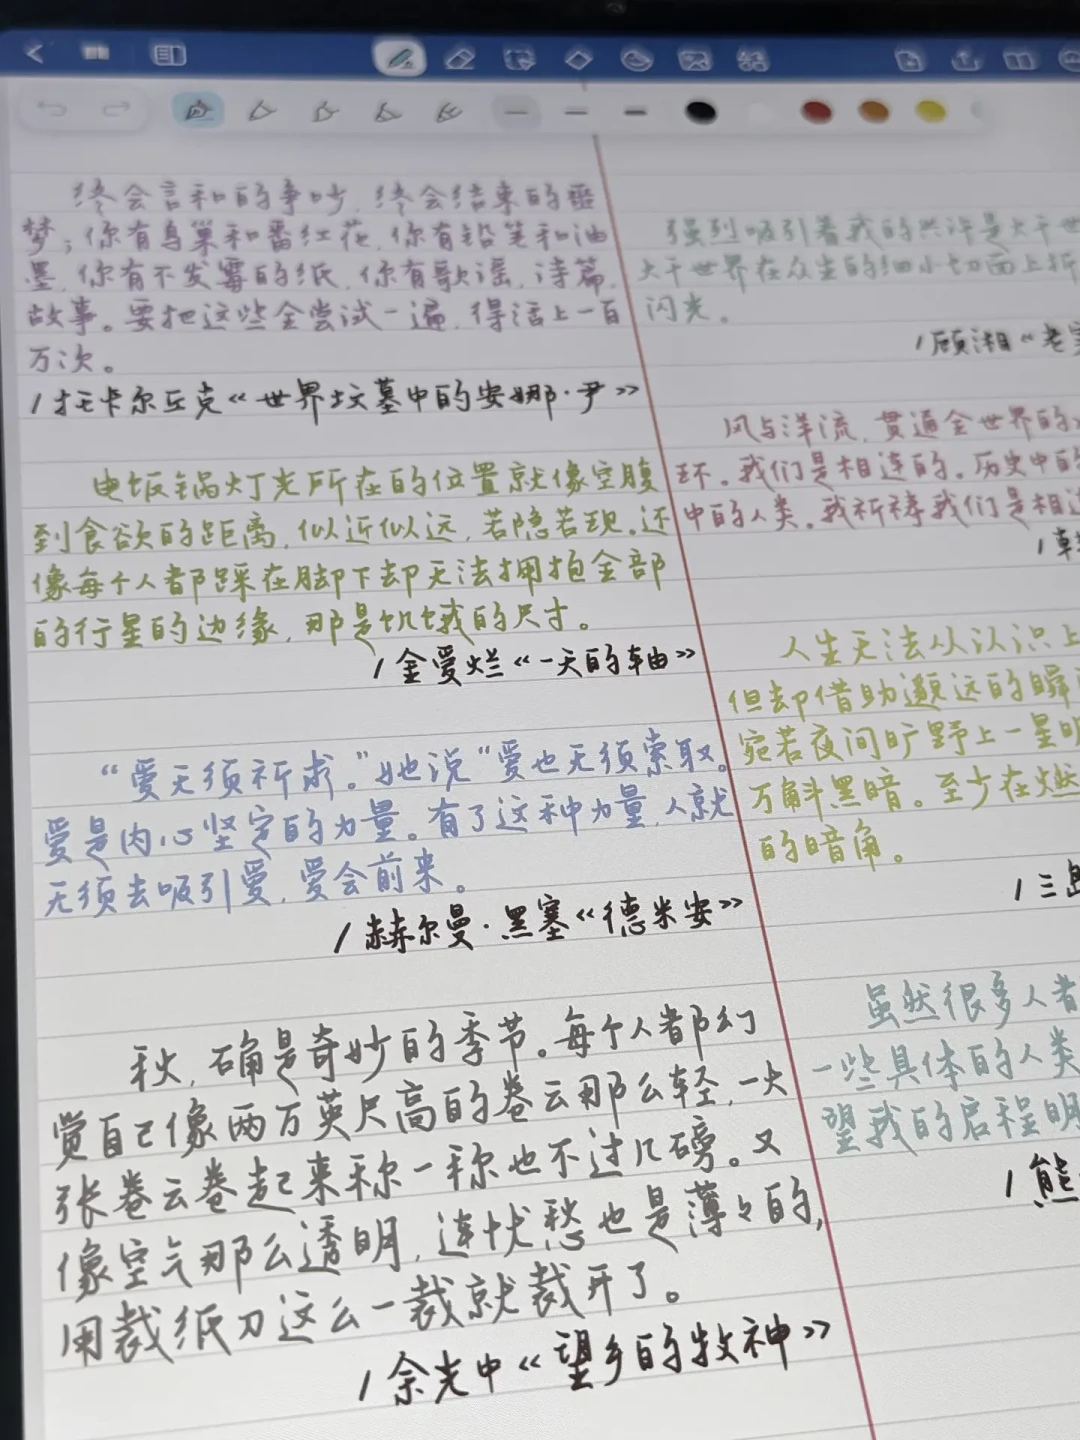 终会言和的争吵，终会结束的噩
梦；你有鸟巢和番红花，你有铅笔和油
墨，你有不发霉的纸，你有歌谣，诗篇，
故事。要把这些全尝试一遍，得活上一百
万次。
/托卡尔丘克《世界坟墓中的安娜·尹》
电饭锅灯光所在的位置就像空腹
到食欲的距离，似近似远，若隐若现。还
像每个人都踩在脚下却无法拥抱全部
的行星的边缘，那是饥饿的尺寸。
/金爱烂《一天的轴》
“爱无须祈求。”她说“爱也无须索取。
爱是内心坚定的力量。有了这种力量，人就
无须去吸引爱，爱会前来。
/赫尔曼·黑塞《德米安》
秋，确是奇妙的季节。每个人都幻
觉自己像两万英尺高的卷云那么轻，一大
张卷云卷起来称一称也不过几磅。又
像空气那么透明，连忧愁也是薄々的，
用裁纸刀这么一裁就裁开了。
/余光中《望乡的牧神》
强烈吸引着我的兴许是大千世
大千世界在众生的细小切面上折
闪光。
/顾湘《老
风与洋流，贯通全世界的
环。我们是相连的。历史中的
中的人类。我祈祷我们是相连
/韩
人生无法从认识上
但却借助邈远的瞬
宛若夜间旷野上一星明
万斛黑暗。至少在燃
的暗角。
/三岛
虽然很多人都
一些具体的人类
望我的启程明
/熊